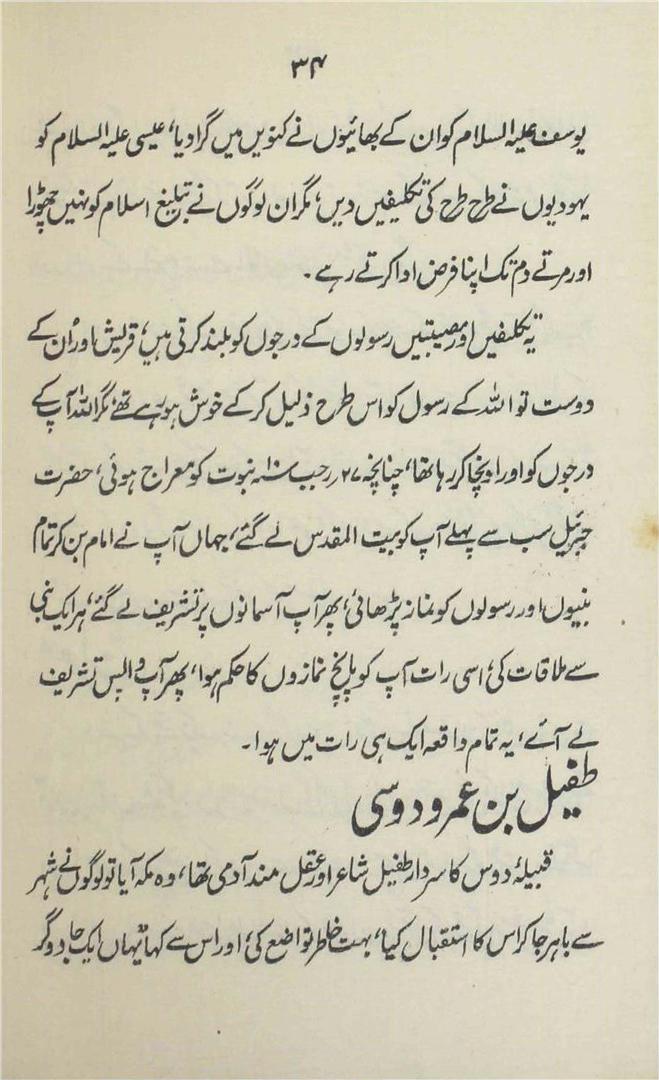 ۳۴
یوسف علیہ السلام کو ان کے بھائیوں نے کنویں میں گرا دیا، عیسی علیہ السلام کو
یہودیوں نے طرح طرح کی تکلیفیں دیں، مگر ان لوگوں نے تبلیغ اسلام کو نہیں چھوڑا
اور مرتے دم تک اپنا فرض ادا کرتے رہے۔
یہ تکلیفیں اور مصیبتیں رسولوں کے درجوں کو بلند کرتی ہیں، قریش اور اُن کے
دوست تو اللہ کے رسول کو اس طرح ذلیل کر کے خوش ہو رہے تھے، مگر اللہ آپ کے
درجوں کو اور اونچا کر رہا تھا، چنانچہ ۲۷ رجب ۱۰ نبوت کو معراج ہوئی، حضرت
جبرئیل سب سے پہلے آپ کو بیت المقدس لے گئے، جہاں آپ نے امام بن کر تمام
نبیوں اور رسولوں کو نماز پڑھائی، پھر آپ آسمانوں پر تشریف لے گئے، ہر ایک نبی
سے ملاقات کی، اسی رات آپ کو پانچ نمازوں کا حکم ہوا، پھر آپ واپس تشریف
لے آئے، یہ تمام واقعہ ایک ہی رات میں ہوا۔
طفیل بن عمرو دوسی
قبیلۂ دوس کا سردار طفیل شاعر اور عقل مند آدمی تھا، وہ مکہ آیا تو لوگوں نے شہر
سے باہر جا کر اس کا استقبال کیا، بہت خاطر تواضع کی، اور اس سے کہا "یہاں ایک جادوگر